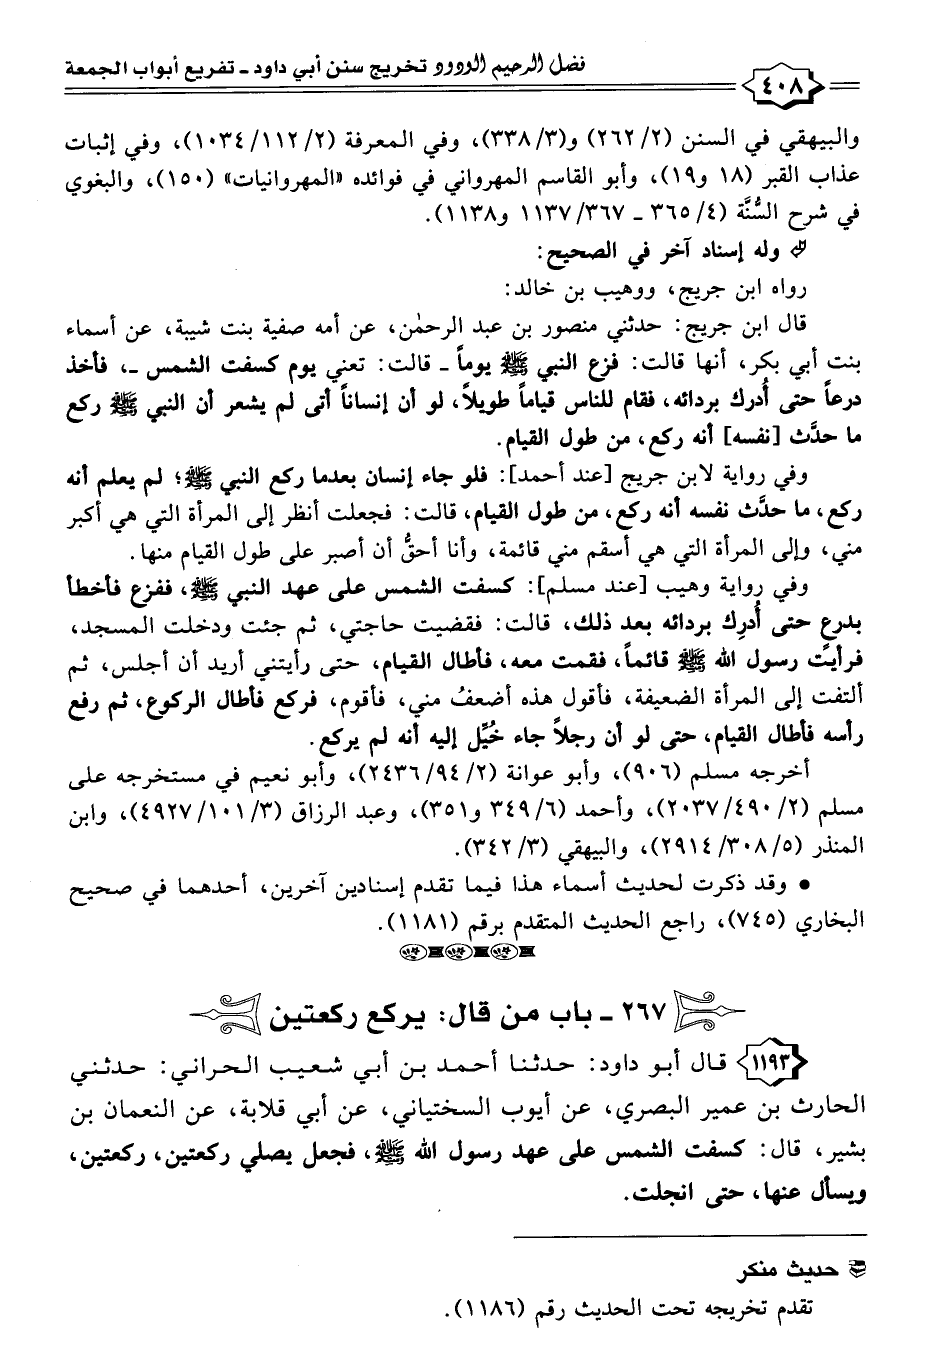 ٤٠٨ فضل الرحيم الودود تخريج سنن أبي داود ـ تفريع أبواب الجمعة
والبيهقي في السنن (٢/ ٢٦٢) و(٣/ ٣٣٨)، وفي المعرفة (٢/ ١١٢/ ١٠٣٤)، وفي إثبات
عذاب القبر (١٨ و١٩)، وأبو القاسم المهرواني في فوائده «المهروانيات» (١٥٠)، والبغوي
في شرح السُّنَّة (٤/ ٣٦٥ ـ ٣٦٧/ ١١٣٧ و١١٣٨).
وله إسناد آخر في الصحيح:
رواه ابن جريج، ووهيب بن خالد:
قال ابن جريج: حدثني منصور بن عبد الرحمٰن، عن أمه صفية بنت شيبة، عن أسماء
بنت أبي بكر، أنها قالت: فزع النبي ﷺ يوماً ـ قالت: تعني يوم كسفت الشمس ـ، فأخذ
درعاً حتى أُدرك بردائه، فقام للناس قياماً طويلاً، لو أن إنساناً أتى لم يشعر أن النبي ﷺ ركع
ما حدَّث [نفسه] أنه ركع، من طول القيام.
وفي رواية لابن جريج [عند أحمد]: فلو جاء إنسان بعدما ركع النبي ﷺ؛ لم يعلم أنه
ركع، ما حدَّث نفسه أنه ركع، من طول القيام، قالت: فجعلت أنظر إلى المرأة التي هي أكبر
مني، وإلى المرأة التي هي أسقم مني قائمة، وأنا أحقُّ أن أصبر على طول القيام منها.
وفي رواية وهيب [عند مسلم]: كسفت الشمس على عهد النبي ﷺ، ففزع فأخطأ
بدرعٍ حتى أُدرِك بردائه بعد ذلك، قالت: فقضيت حاجتي، ثم جئت ودخلت المسجد،
فرأيت رسول الله ﷺ قائماً، فقمت معه، فأطال القيام، حتى رأيتني أريد أن أجلس، ثم
ألتفت إلى المرأة الضعيفة، فأقول هذه أضعفُ مني، فأقوم، فركع فأطال الركوع، ثم رفع
رأسه فأطال القيام، حتى لو أن رجلاً جاء خُيِّل إليه أنه لم يركع.
أخرجه مسلم (٩٠٦)، وأبو عوانة (٢/ ٩٤/ ٢٤٣٦)، وأبو نعيم في مستخرجه على
مسلم (٢/ ٤٩٠/ ٢٠٣٧)، وأحمد (٦/ ٣٤٩ و٣٥١)، وعبد الرزاق (٣/ ١٠١/ ٤٩٢٧)، وابن
المنذر (٥/ ٣٠٨/ ٢٩١٤)، والبيهقي (٣/ ٣٤٢).
• وقد ذكرت لحديث أسماء هذا فيما تقدم إسنادين آخرين، أحدهما في صحيح
البخاري (٧٤٥)، راجع الحديث المتقدم برقم (١١٨١).
٢٦٧ ـ باب من قال: يركع ركعتين
١١٩٣ قال أبو داود: حدثنا أحمد بن أبي شعيب الحراني: حدثني
الحارث بن عمير البصري، عن أيوب السختياني، عن أبي قلابة، عن النعمان بن
بشير، قال: كسفت الشمس على عهد رسول الله ﷺ، فجعل يصلي ركعتين، ركعتين،
ويسأل عنها، حتى انجلت.
حديث منكر
تقدم تخريجه تحت الحديث رقم (١١٨٦).